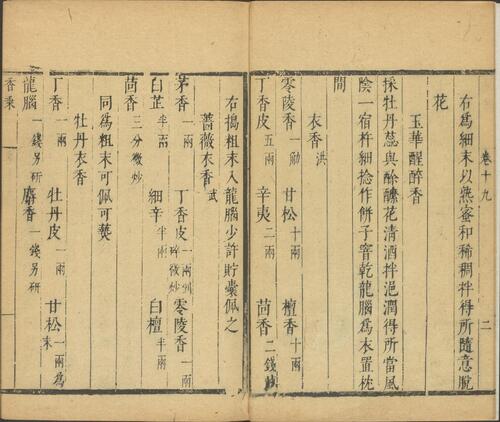 卷十九
二
右為細末以煉蜜和稀稠拌得所隨意脫
花
玉華醒醉香
採牡丹蕊與酴醾花清酒拌浥潤得所當風
陰一宿杵細捻作餅子窨乾龍腦為衣置枕
間
衣香 洪
零陵香 一觔 甘松 十兩 檀香 十兩
丁香皮 五兩 辛夷 二兩 茴香 二錢
右搗粗末入龍腦少許貯囊佩之
薔薇衣香 武
茅香 一兩 丁香皮 一兩剉碎微炒 零陵香 一兩
白芷 半兩 細辛 半兩 白檀 半兩
茴香 三分微炒
同為粗末可佩可爇
牡丹衣香
丁香 一兩 牡丹皮 一兩 甘松 一兩為末
龍腦 一錢另研 麝香 一錢另研
香乘